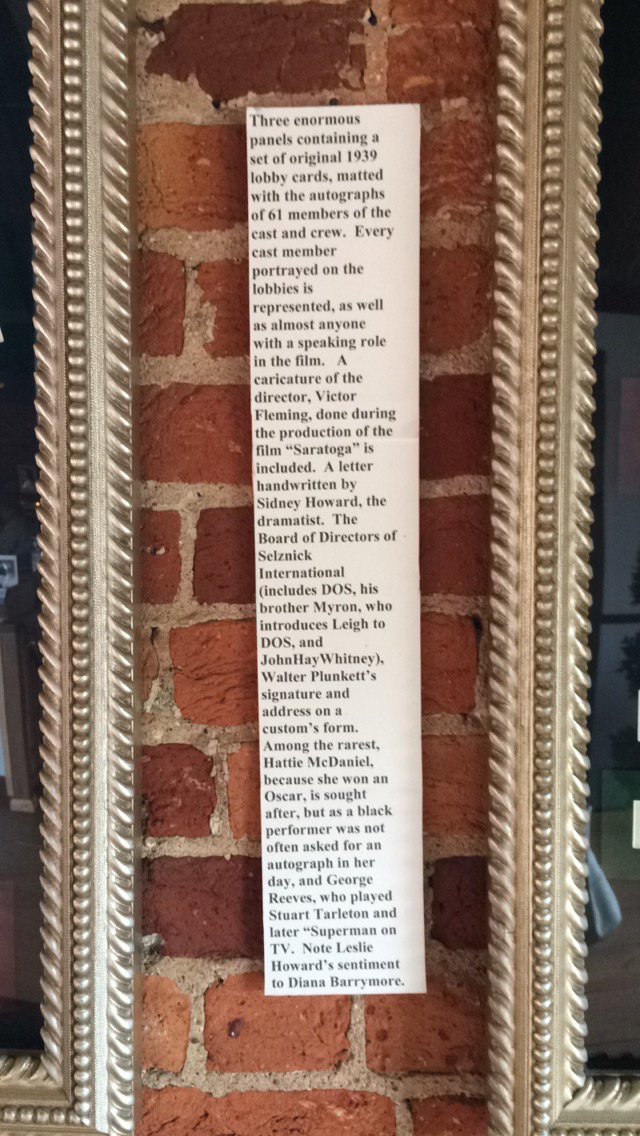 Three enormous
panels containing a
set of original 1939
lobby cards, matted
with the autographs
of 61 members of the
cast and crew.  Every
cast member
portrayed on the
lobbies is
represented, as well
as almost anyone
with a speaking role
in the film.   A
caricature of the
director, Victor
Fleming, done during
the production of the
film “Saratoga” is
included.  A letter
handwritten by
Sidney Howard, the
dramatist.  The
Board of Directors of
Selznick
International
(includes DOS, his
brother Myron, who
introduces Leigh to
DOS, and
JohnHayWhitney),
Walter Plunkett’s
signature and
address on a
custom’s form.
Among the rarest,
Hattie McDaniel,
because she won an
Oscar, is sought
after, but as a black
performer was not
often asked for an
autograph in her
day, and George
Reeves, who played
Stuart Tarleton and
later “Superman on
TV.  Note Leslie
Howard’s sentiment
to Diana Barrymore.